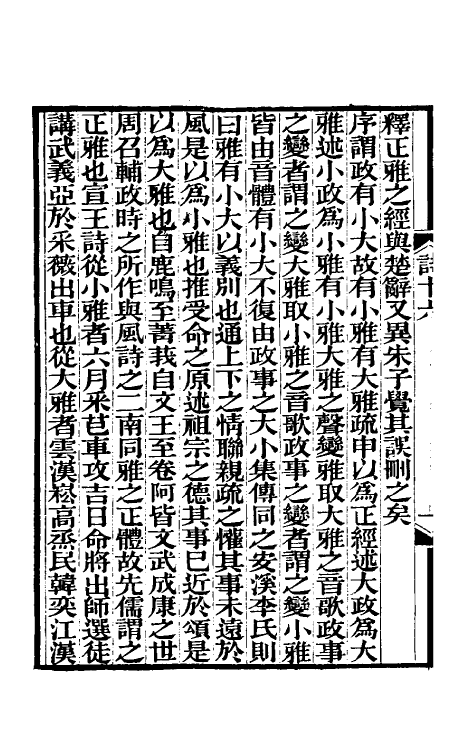 詩十六
釋正雅之經與楚辭又異朱子覺其誤刪之矣
序謂政有小大故有小雅有大雅疏申以爲正經述大政爲大
雅述小政爲小雅有小雅大雅之聲變雅取大雅之音歌政事
之變者謂之變大雅取小雅之音歌政事之變者謂之變小雅
皆由音體有小大不復由政事之大小集傳同之安溪李氏則
曰雅有小大以義別也通上下之情聯親疏之懽其事未遠於
風是以爲小雅也推受命之原述祖宗之德其事已近於頌是
以爲大雅也自鹿鳴至菁莪自文王至卷阿皆文武成康之世
周召輔政時之所作與風詩之二南同雅之正體故先儒謂之
正雅也宣王詩從小雅者六月釆芑車攻吉日命將出師選徒
講武義亞於采薇出車也從大雅者雲漢崧高烝民韓奕江漢